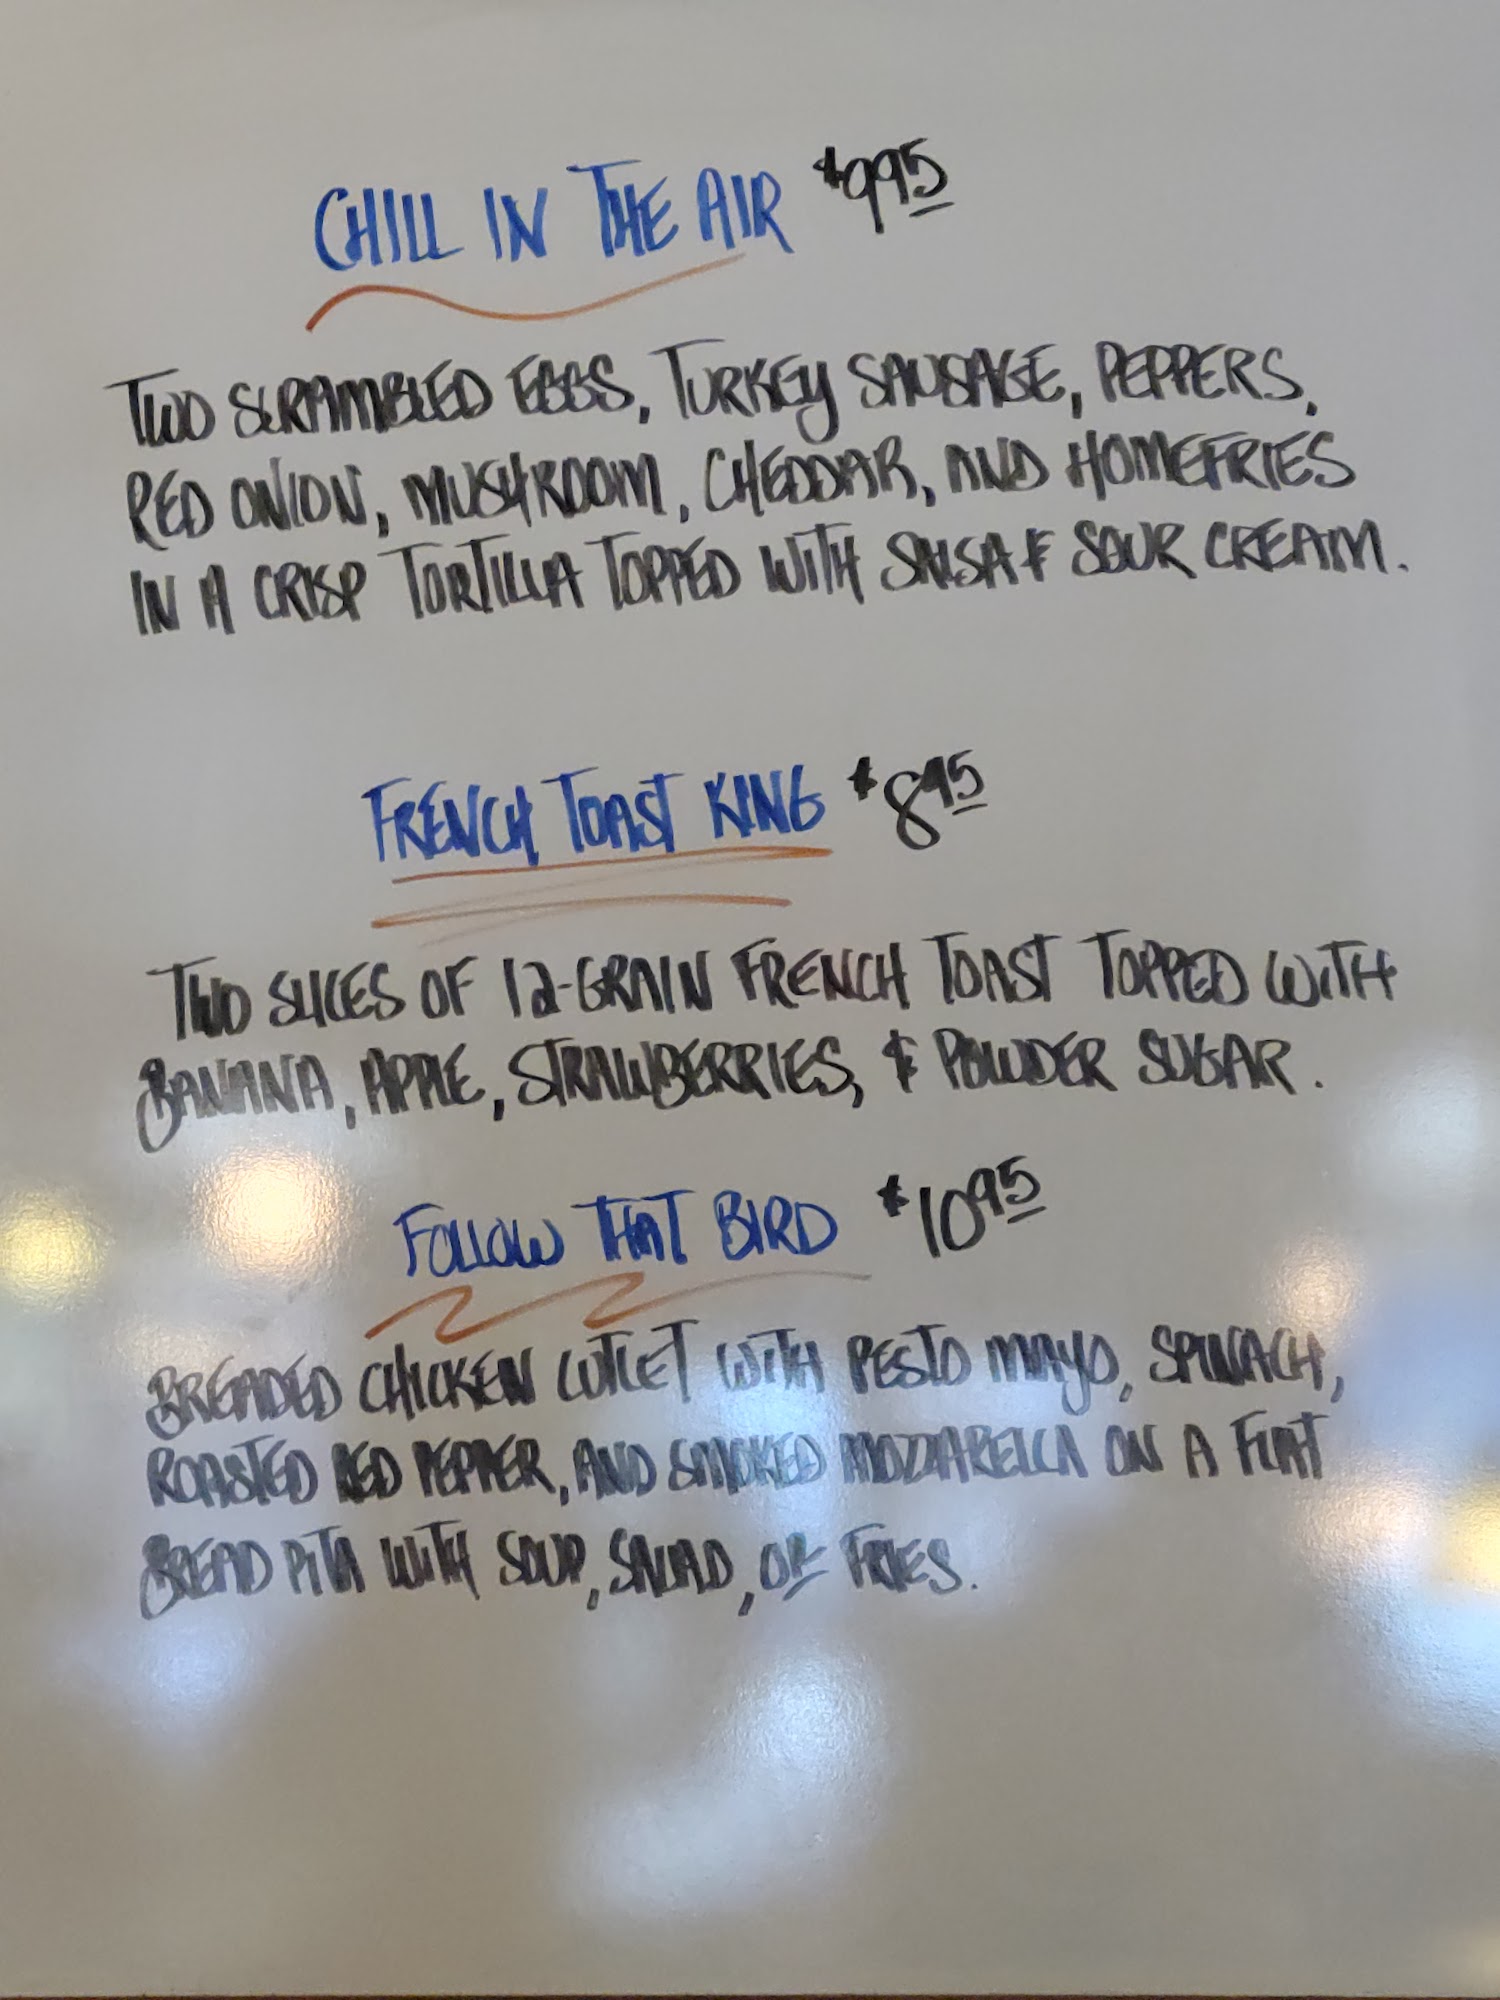 CHILL IN THE AIR $9.95
TWO SCRAMBLED EGGS, TURKEY SAUSAGE, PEPPERS,
RED ONION, MUSHROOM, CHEDDAR, AND HOMEFRIES
IN A CRISP TORTILLA TOPPED WITH SALSA & SOUR CREAM.
FRENCH TOAST KING $8.95
TWO SLICES OF 12-GRAIN FRENCH TOAST TOPPED WITH
BANANA, APPLE, STRAWBERRIES, & POWDER SUGAR.
FOLLOW THAT BIRD $10.95
BREADED CHICKEN CUTLET WITH PESTO MAYO, SPINACH,
ROASTED RED PEPPER, AND SMOKED MOZZARELLA ON A FLAT
BREAD PITA WITH SOUP, SALAD, OR FRIES.